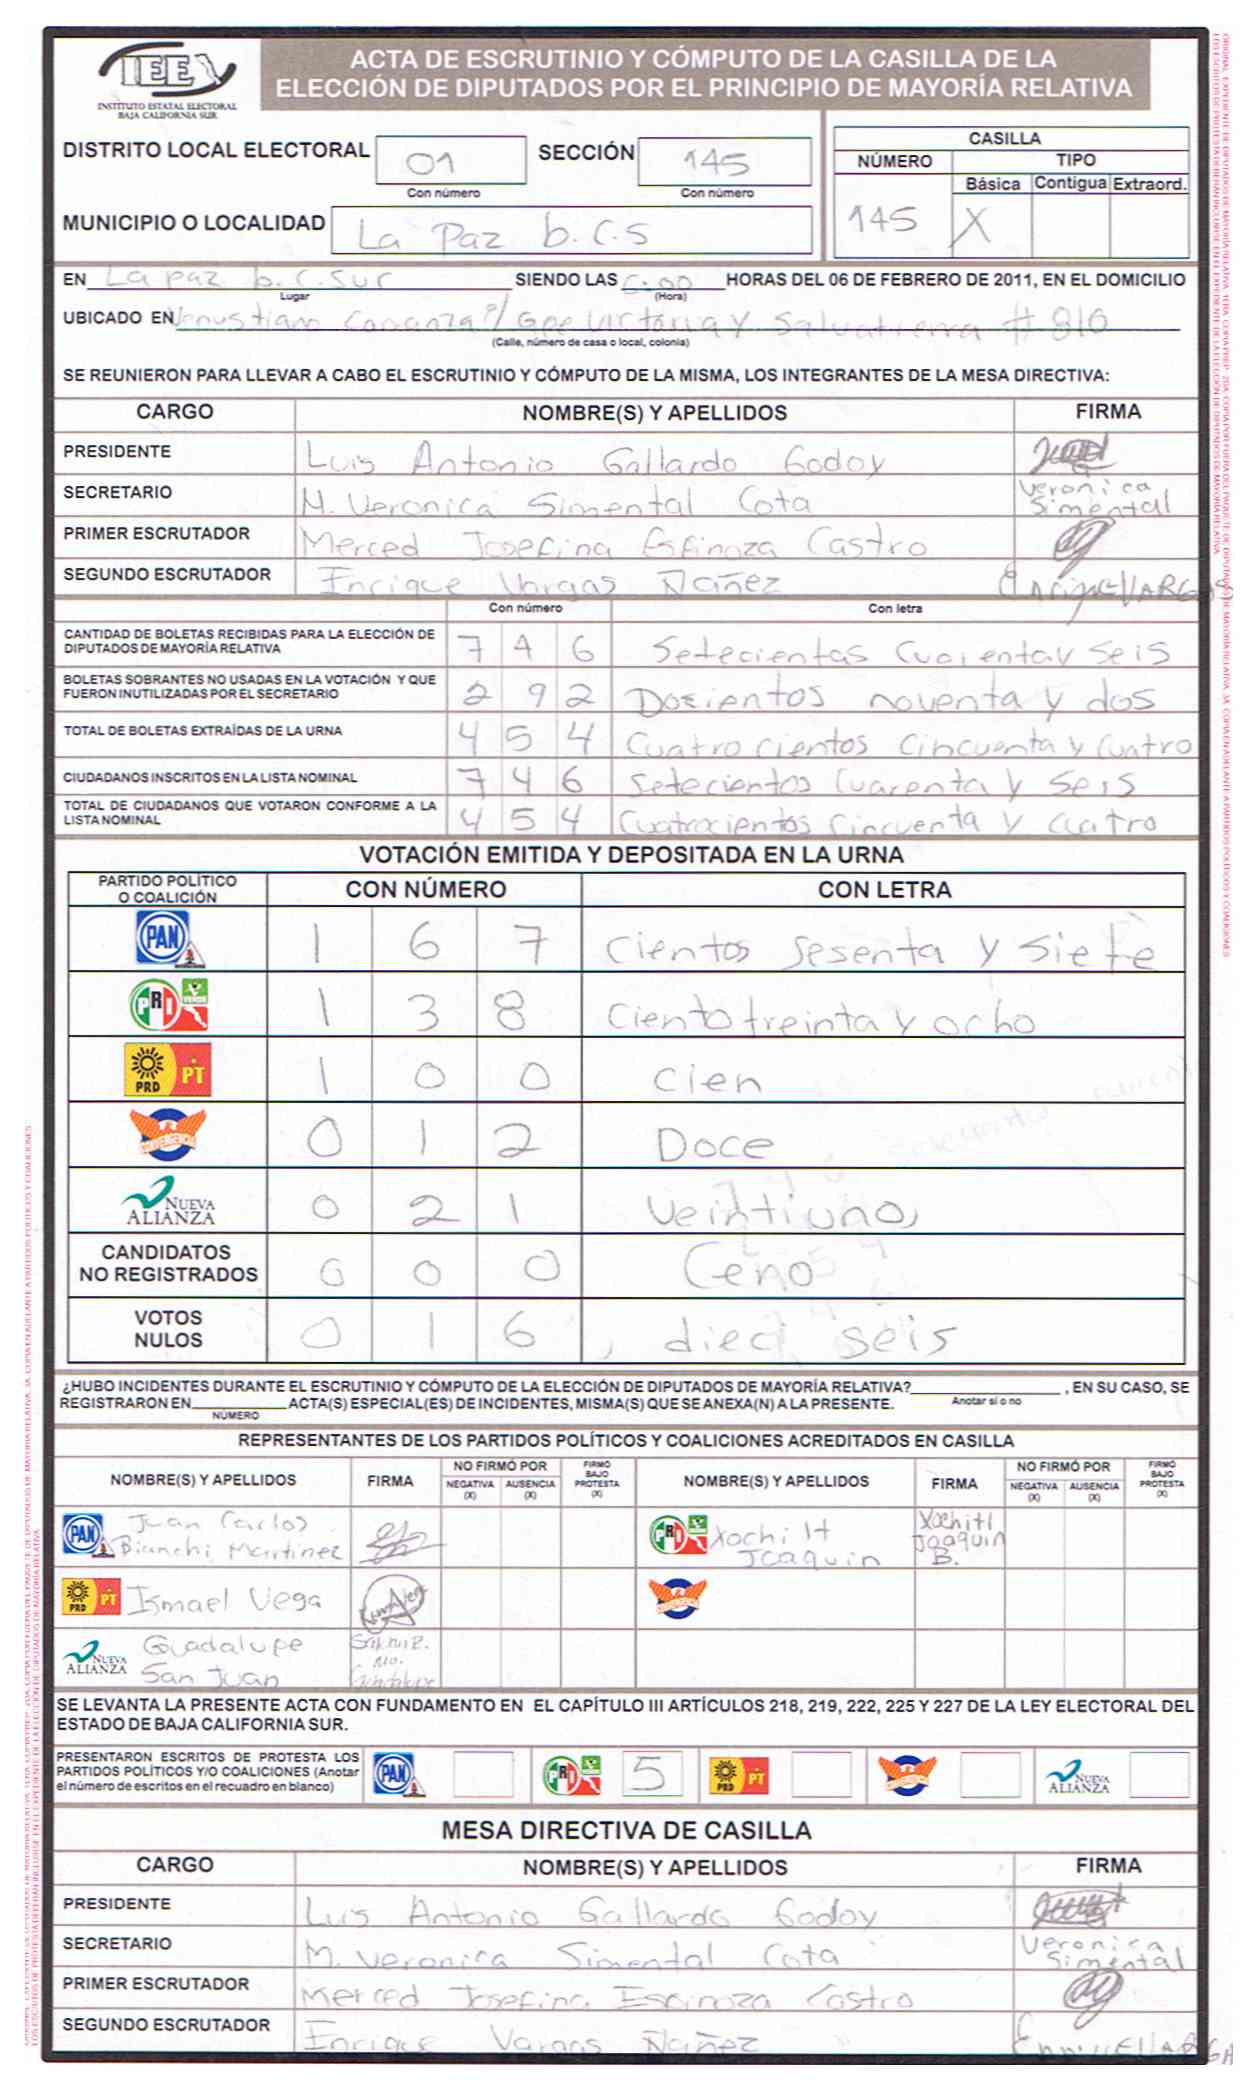 IEE
INSTITUTO ESTATAL ELECTORAL
BAJA CALIFORNIA SUR
ACTA DE ESCRUTINIO Y CÓMPUTO DE LA CASILLA DE LA
ELECCIÓN DE DIPUTADOS POR EL PRINCIPIO DE MAYORÍA RELATIVA
DISTRITO LOCAL ELECTORAL 01 SECCIÓN 145
Con número Con número
MUNICIPIO O LOCALIDAD La Paz b.C.S
CASILLA
NÚMERO TIPO
Básica Contigua Extraord.
145 X
EN La paz b.C.Sur SIENDO LAS 6:00 HORAS DEL 06 DE FEBRERO DE 2011, EN EL DOMICILIO
Lugar (Hora)
UBICADO EN Venustiano Carranza e/ Gpe Victoria y Salvatierra # 810
(Calle, número de casa o local, colonia)
SE REUNIERON PARA LLEVAR A CABO EL ESCRUTINIO Y CÓMPUTO DE LA MISMA, LOS INTEGRANTES DE LA MESA DIRECTIVA:
CARGO NOMBRE(S) Y APELLIDOS FIRMA
PRESIDENTE Luis Antonio Gallardo Godoy
SECRETARIO M. Veronica Simental Cota Veronica Simental
PRIMER ESCRUTADOR Merced Josefina Espinoza Castro
SEGUNDO ESCRUTADOR Enrique Vargas Ñañez Enrique VARGAS
Con número Con letra
CANTIDAD DE BOLETAS RECIBIDAS PARA LA ELECCIÓN DE
DIPUTADOS DE MAYORÍA RELATIVA 7 4 6 Setecientas Cuarenta y Seis
BOLETAS SOBRANTES NO USADAS EN LA VOTACIÓN Y QUE
FUERON INUTILIZADAS POR EL SECRETARIO 2 9 2 Docientos noventa y dos
TOTAL DE BOLETAS EXTRAÍDAS DE LA URNA 4 5 4 Cuatro cientos Cincuenta y Cuatro
CIUDADANOS INSCRITOS EN LA LISTA NOMINAL 7 4 6 Setecientos Cuarenta y Seis
TOTAL DE CIUDADANOS QUE VOTARON CONFORME A LA
LISTA NOMINAL 4 5 4 Cuatrocientos Cincuenta y Cuatro
VOTACIÓN EMITIDA Y DEPOSITADA EN LA URNA
PARTIDO POLÍTICO
O COALICIÓN CON NÚMERO CON LETRA
PAN 1 6 7 Cientos Sesenta y Siete
PRI VERDE 1 3 8 Ciento treinta y ocho
PRD PT 1 0 0 Cien
CONVERGENCIA 0 1 2 Doce
NUEVA ALIANZA 0 2 1 Veintiuno
CANDIDATOS
NO REGISTRADOS 0 0 0 Cero
VOTOS
NULOS 0 1 6 dieci seis
¿HUBO INCIDENTES DURANTE EL ESCRUTINIO Y CÓMPUTO DE LA ELECCIÓN DE DIPUTADOS DE MAYORÍA RELATIVA? , EN SU CASO, SE
Anotar sí o no
REGISTRARON EN ACTA(S) ESPECIAL(ES) DE INCIDENTES, MISMA(S) QUE SE ANEXA(N) A LA PRESENTE.
NÚMERO
REPRESENTANTES DE LOS PARTIDOS POLÍTICOS Y COALICIONES ACREDITADOS EN CASILLA
NOMBRE(S) Y APELLIDOS FIRMA NO FIRMÓ POR NEGATIVA (X) AUSENCIA (X) FIRMÓ BAJO PROTESTA (X) NOMBRE(S) Y APELLIDOS FIRMA NO FIRMÓ POR NEGATIVA (X) AUSENCIA (X) FIRMÓ BAJO PROTESTA (X)
PAN Juan Carlos Bianchi Martinez PRI Xochilt Joaquin Xochitl Joaquin B.
PRD PT Ismael Vega CONVERGENCIA
NUEVA ALIANZA Guadalupe San Juan
SE LEVANTA LA PRESENTE ACTA CON FUNDAMENTO EN EL CAPÍTULO III ARTÍCULOS 218, 219, 222, 225 Y 227 DE LA LEY ELECTORAL DEL
ESTADO DE BAJA CALIFORNIA SUR.
PRESENTARON ESCRITOS DE PROTESTA LOS
PARTIDOS POLÍTICOS Y/O COALICIONES (Anotar
el número de escritos en el recuadro en blanco) PAN PRI 5 PRD PT CONVERGENCIA NUEVA ALIANZA
MESA DIRECTIVA DE CASILLA
CARGO NOMBRE(S) Y APELLIDOS FIRMA
PRESIDENTE Luis Antonio Gallardo Godoy
SECRETARIO M. Veronica Simental Cota Veronica Simental
PRIMER ESCRUTADOR Merced Josefina Espinoza Castro
SEGUNDO ESCRUTADOR Enrique Vargas Ñañez